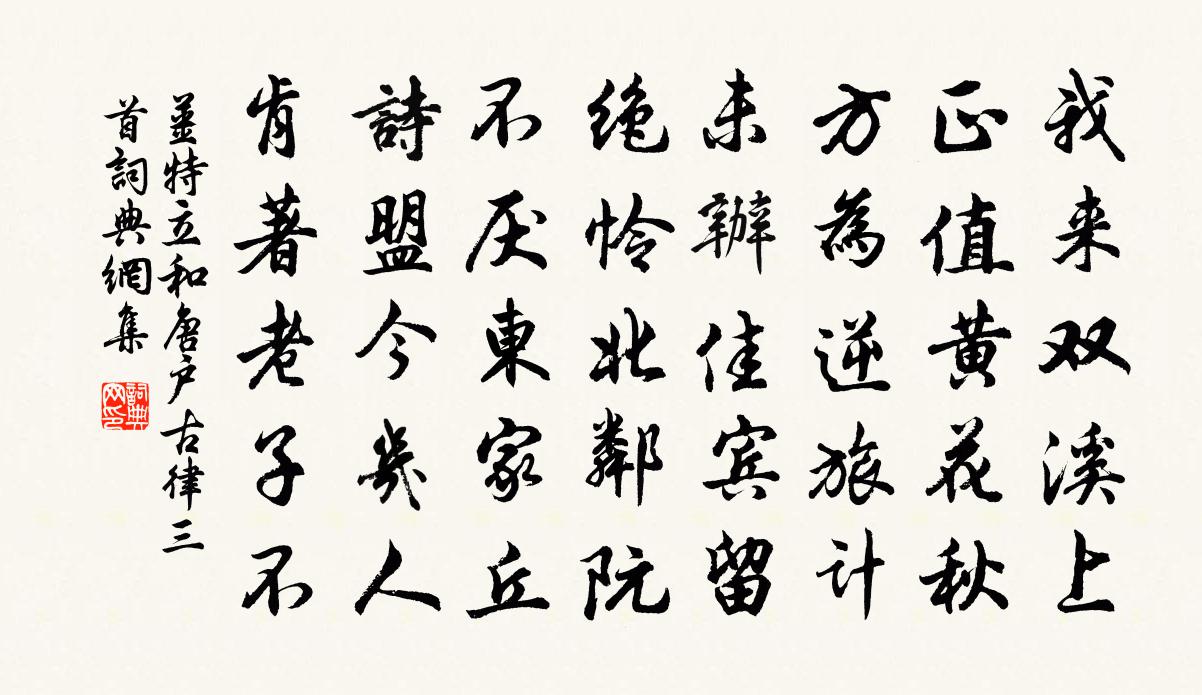 我来双溪上
正值黄花秋
方為逆旅计
未辦佳宾留
绝怜北鄰阮
不厌東家丘
詩盟今幾人
肯著老子不
姜特立和唐户古律三
首詞典網集
詞典网印